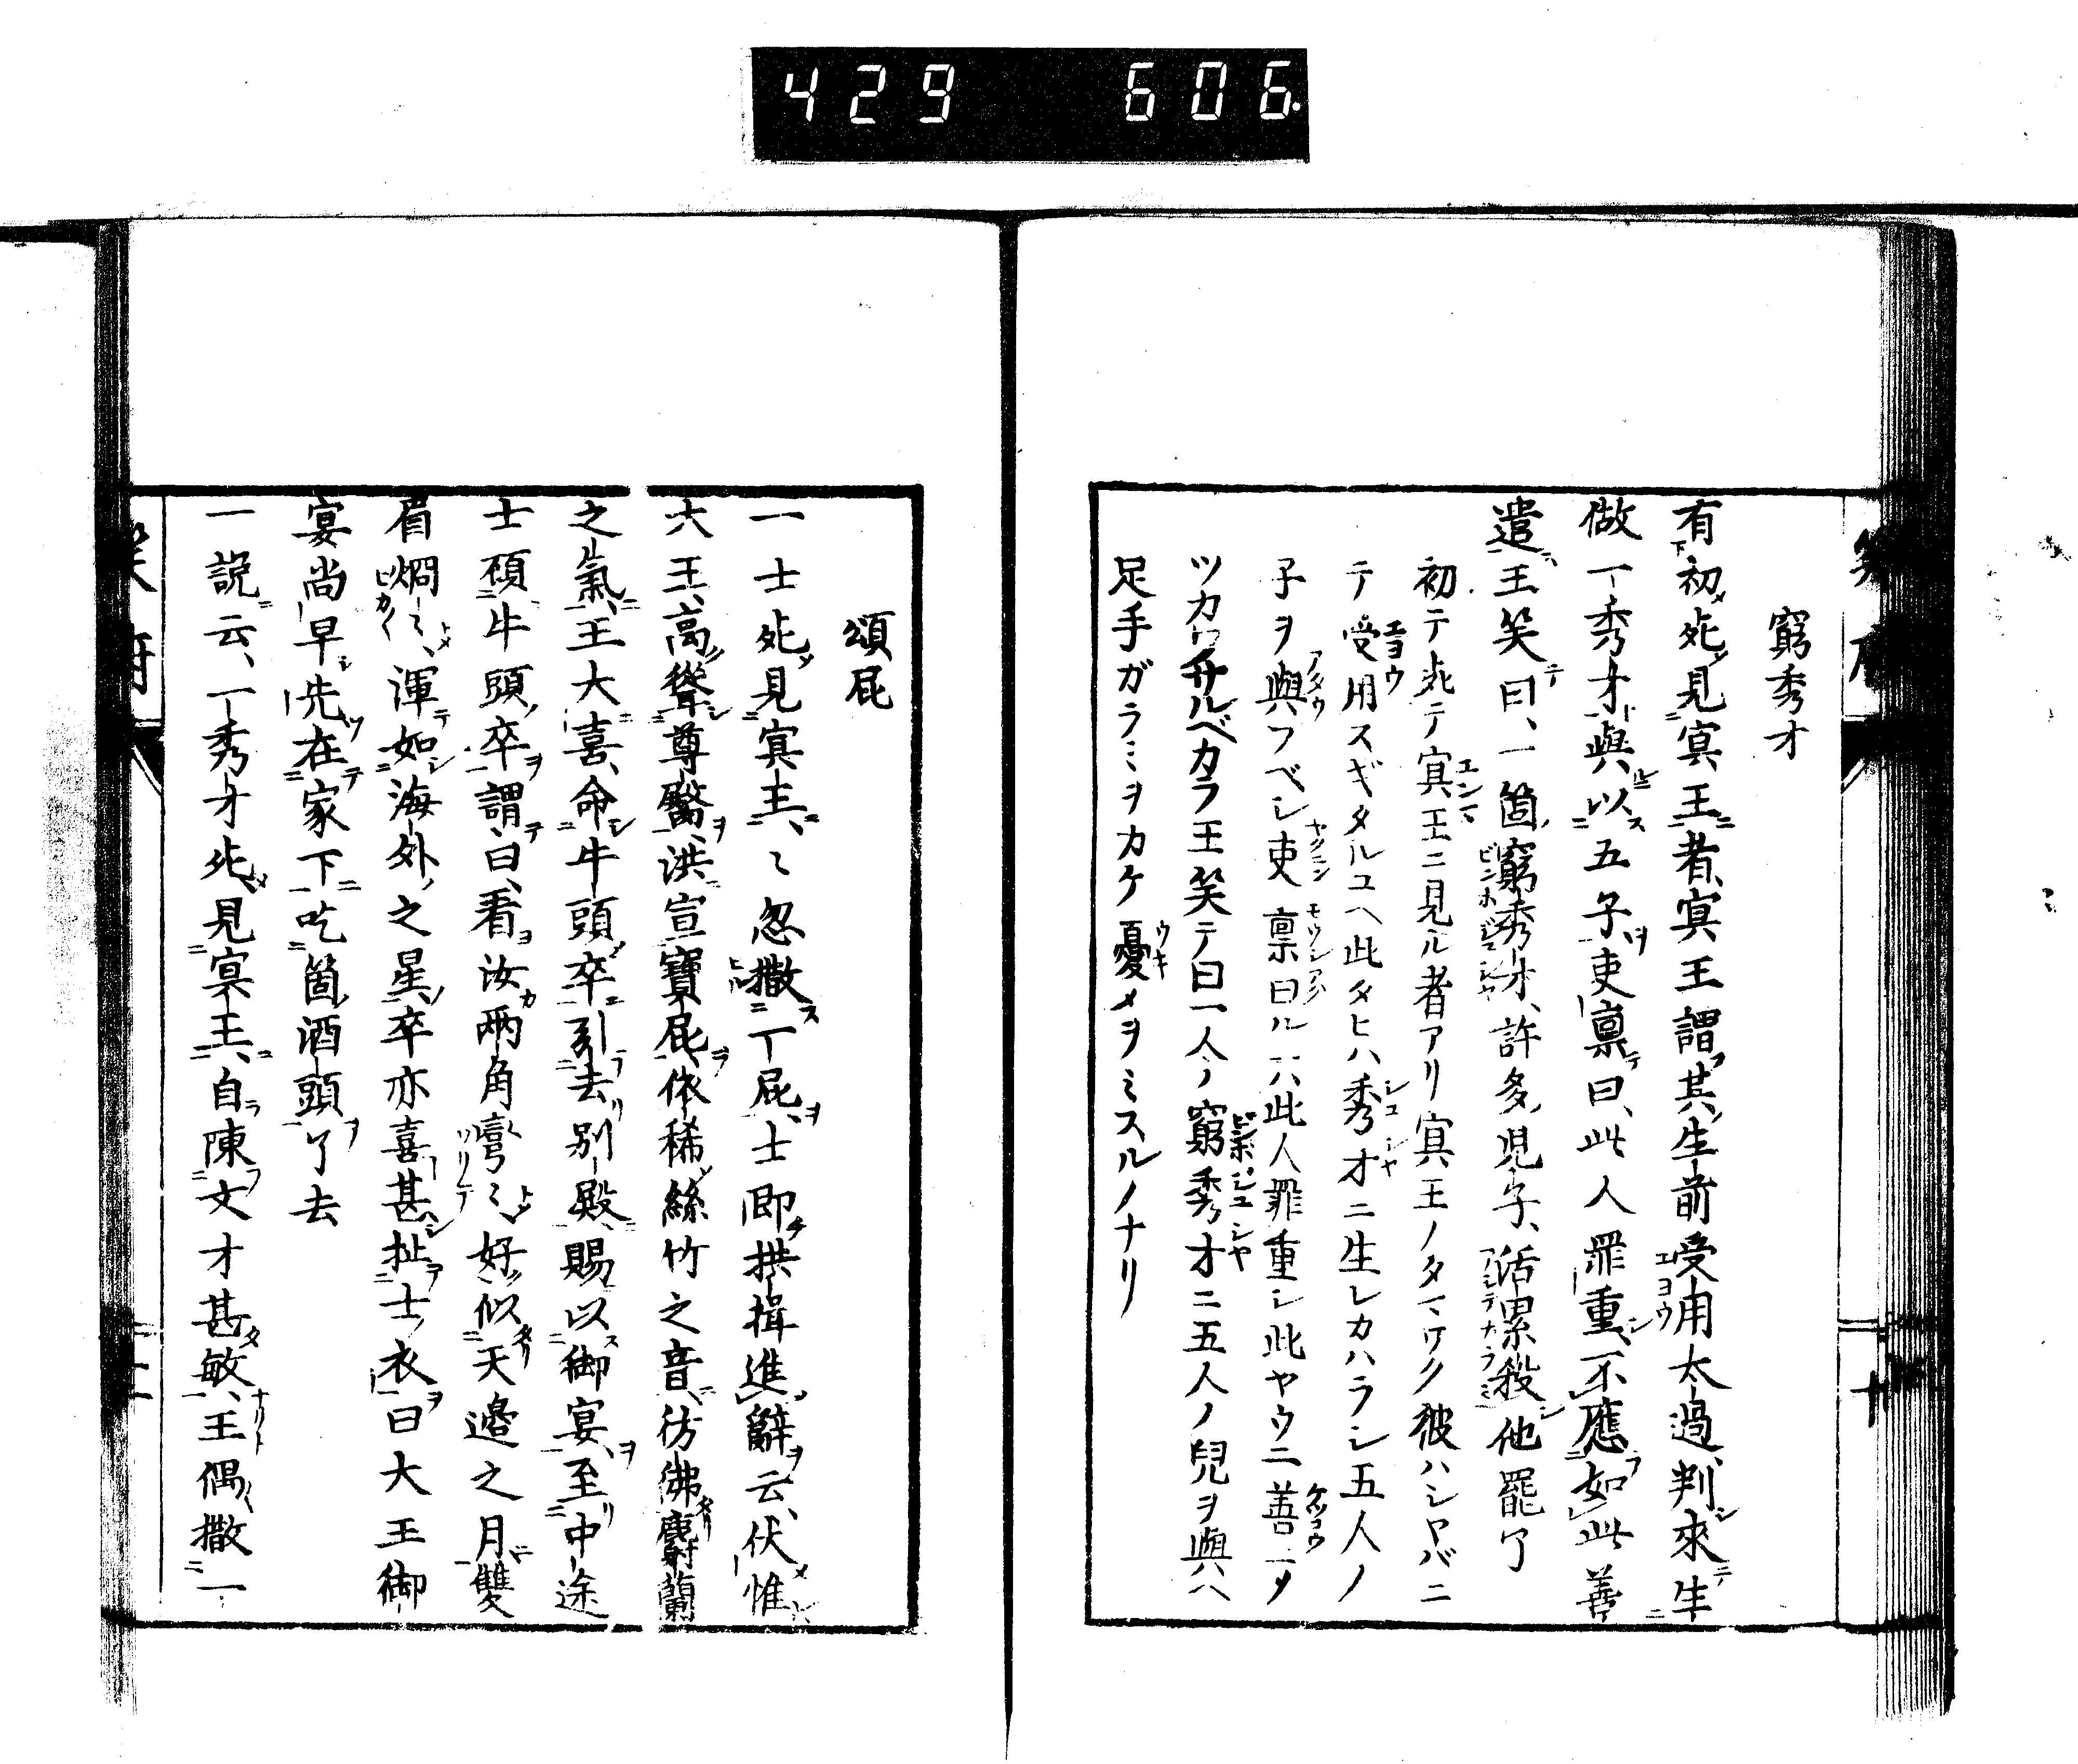 429 606.
窮秀才
有初死見冥王者、冥王謂其生前受用太過、判來生
做一秀才、與以五子、吏稟曰、此人罪重、不應如此善
遣、王笑曰、一箇窮秀才、許多児子、活累殺他罷了
初テ死テ冥王ニ見ル者アリ冥王ノタマワク彼ハシヤバニ
テ受用スギタルユヘ此タヒハ秀才ニ生レカハラシ五人ノ
子ヲ與フベシ吏稟曰ルハ此人罪重シ此ヤウニ善メ
ツカハサルベカラ王笑テ曰一人ノ窮秀才ニ五人ノ兒ヲ與ヘ
足手ガラミヲカケ憂メヲミスルノナリ
頌屁
一士死見冥王、ミ忽撒一屁、士即拱揖進辭云、伏惟
大王、高聳尊臀、洪宣寶屁、依稀絲竹之音、彷彿麝蘭
之氣、王大喜、命牛頭卒引去別殿、賜以御宴、至中途
士顧牛頭卒謂曰、看汝兩角彎ミ、好似天邊之月、雙
眉烱ミ、渾如海外之星、卒亦喜甚、扯士衣曰大王御
宴尚早、先在家下吃箇酒頭了去
一説云、一秀才死、見冥王、自陳文才甚敏、王偶撒一
笑府
十